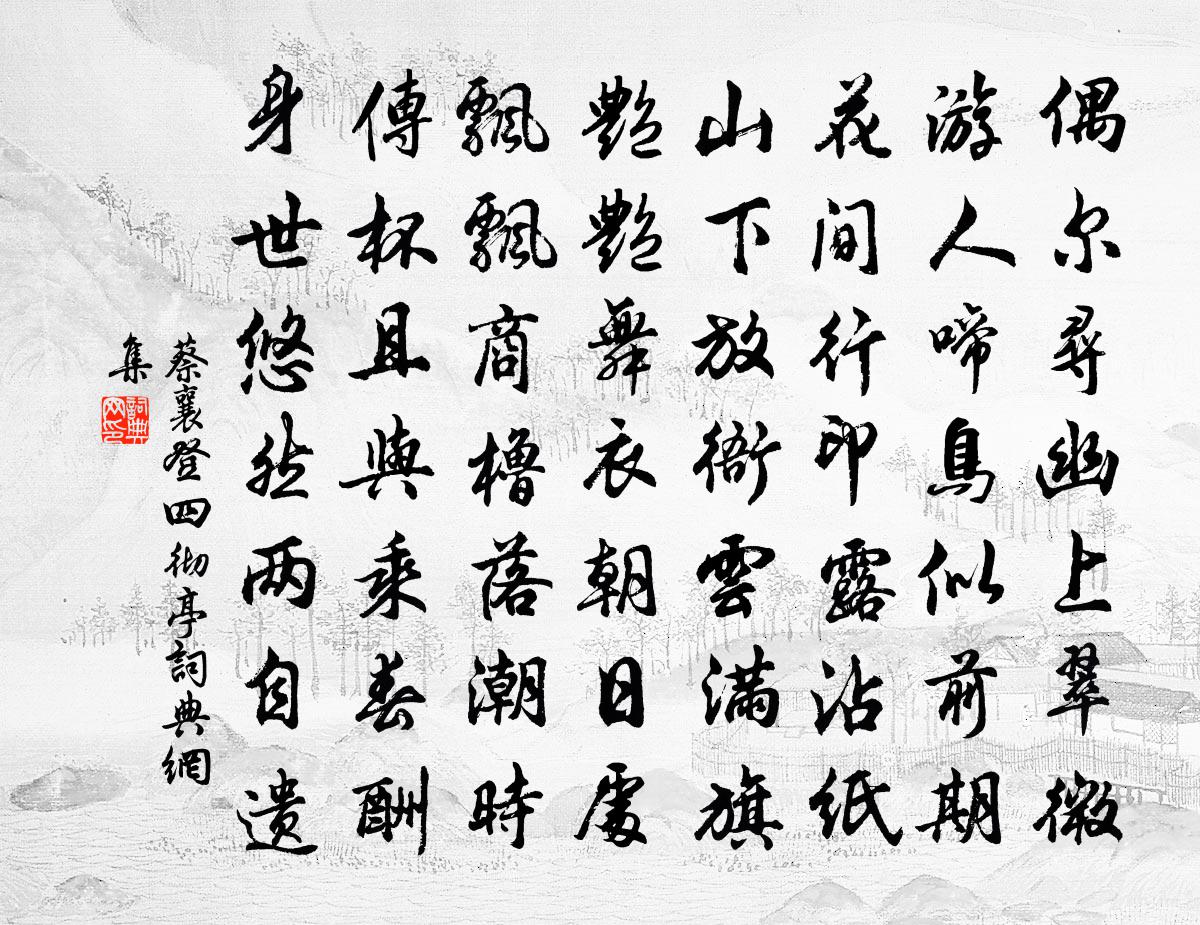 偶尔尋幽上翠微
游人啼鳥似前期
花間行印露沾紙
山下放衙雲滿旗
艷艷舞衣朝日處
飄飄商櫓落潮時
傳杯且與乘春酬
身世悠然两自遗
蔡襄登四彻亭詞典網
集
詞典网印